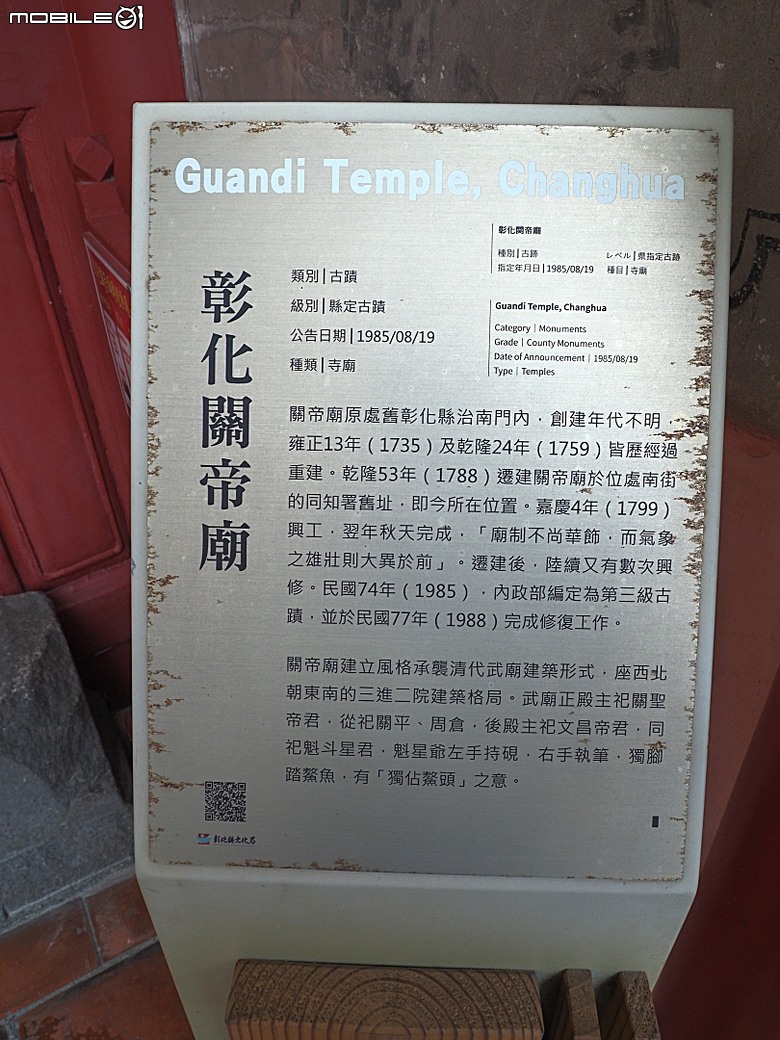 MOBILE01
Guandi Temple, Changhua
彰化関帝廟
種別|古跡
レベル|県指定古跡
指定年月日|1985/08/19
種目|寺廟
Guandi Temple, Changhua
Category|Monuments
Grade|County Monuments
Date of Announcement|1985/08/19
Type|Temples
彰化關帝廟
類別|古蹟
級別|縣定古蹟
公告日期|1985/08/19
種類|寺廟
關帝廟原處舊彰化縣治南門內，創建年代不明，
雍正13年（1735）及乾隆24年（1759）皆歷經過
重建。乾隆53年（1788）遷建關帝廟於位處南街
的同知署舊址，即今所在位置。嘉慶4年（1799）
興工，翌年秋天完成，「廟制不尚華飾，而氣象
之雄壯則大異於前」。遷建後，陸續又有數次興
修。民國74年（1985），內政部編定為第三級古
蹟，並於民國77年（1988）完成修復工作。
關帝廟建立風格承襲清代武廟建築形式，座西北
朝東南的三進二院建築格局。武廟正殿主祀關聖
帝君，從祀關平、周倉，後殿主祀文昌帝君，同
祀魁斗星君，魁星爺左手持硯，右手執筆，獨腳
踏鰲魚，有「獨佔鰲頭」之意。
彰化縣文化局